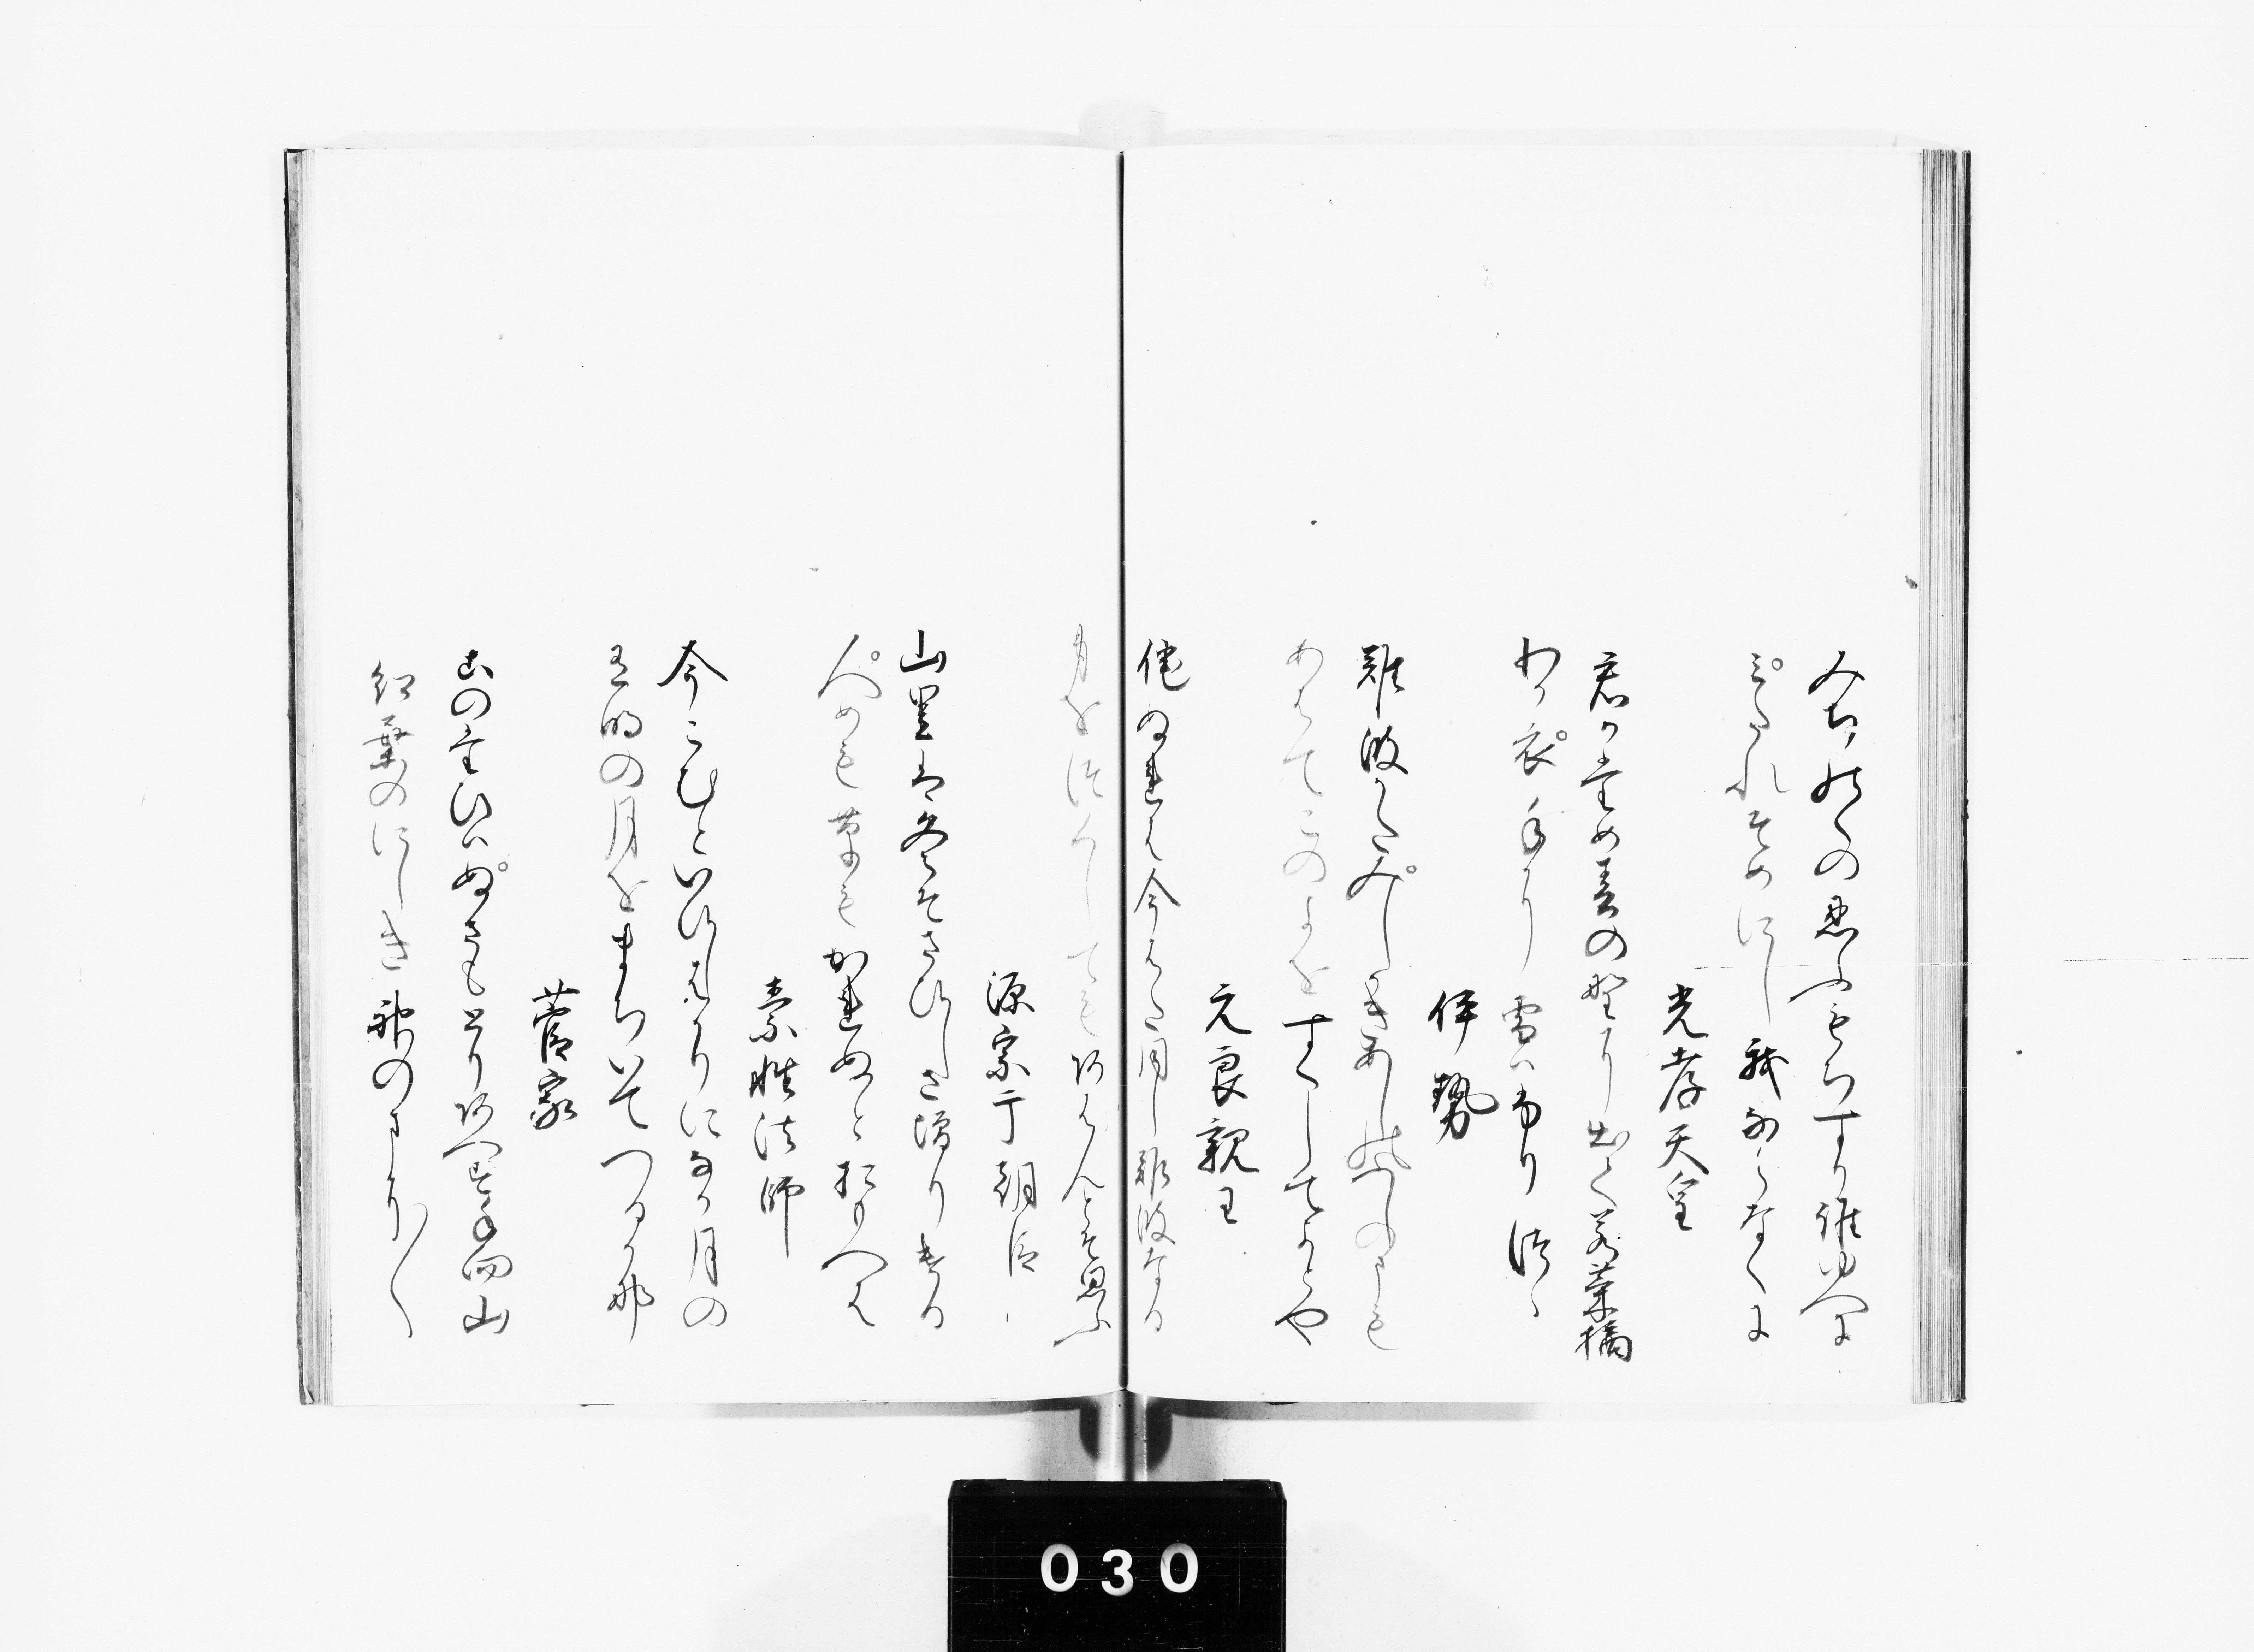 みちのくの忍ふもちすり誰ゆへに
みたれそめにし我ならなくに
光孝天皇
君か為め春の野に出て若菜摘
わか衣手に雪はふりつゝ
伊勢
難波かたみしかきあしのふしのまも
あはてこのよをすくしてよとや
元良親王
侘ぬれは今はた同し難波なる
身をつくしてもあはんとそ思ふ
源宗于朝臣
山里は冬そさひしさ増りける
人めも草もかれぬとおもへは
素性法師
今こむといひしはかりになか月の
有明の月をまちいてつるか那
菅家
此のたひはぬさもとりあへす手向山
紅葉のにしき神のまに〱
030